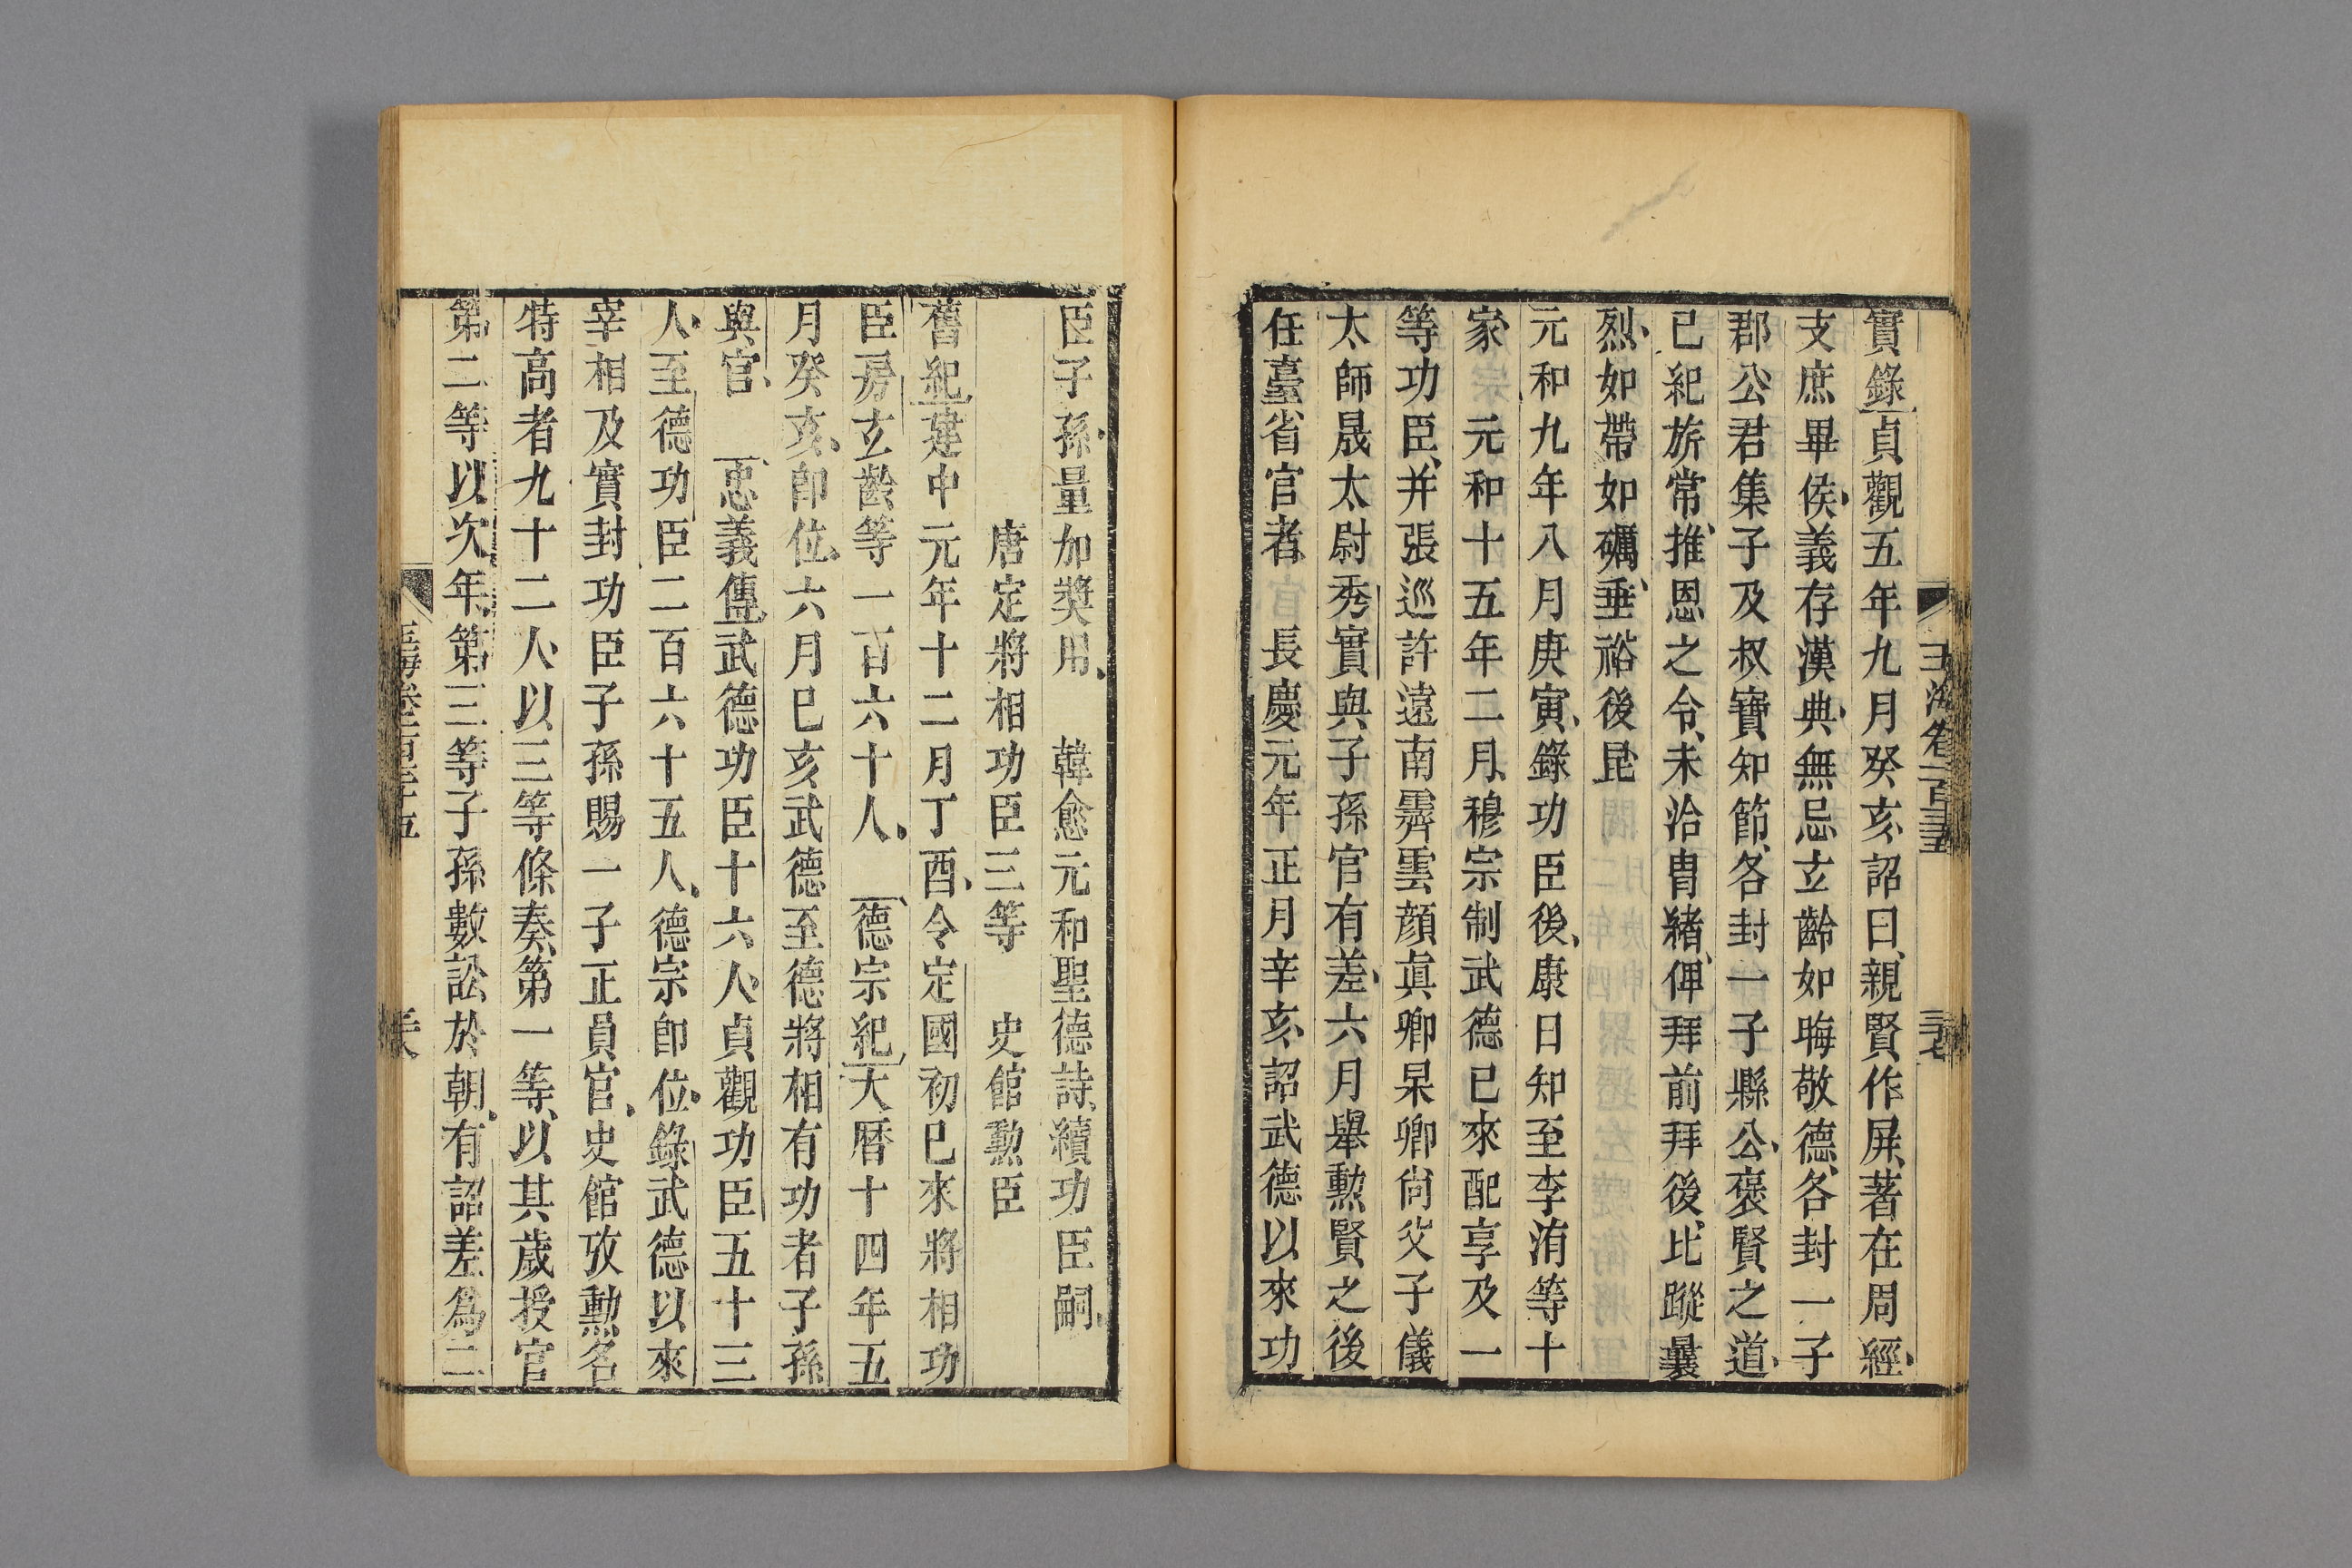 實錄貞觀五年九月癸亥、詔曰、親賢作屏、著在周經、
支庶畢侯、義存漢典、無忌玄齡如晦敬德、各封一子
郡公君集子及叔寶知節、各封一子縣公、褒賢之道、
已紀旂常、推恩之令、未洽胄緒、俾拜前拜後、比蹤曩
烈、如帶如礪、垂裕後昆
元和九年八月庚寅、錄功臣後、康日知至李洧等十
家　元和十五年二月、穆宗制武德已來配享及一
等功臣、并張巡許遠南霽雲顏眞卿杲卿尙父子儀
太師晟太尉秀實與子孫官有差、六月舉勲賢之後
任臺省官者　長慶元年正月辛亥、詔武德以來功
臣子孫、量加奬用、　韓愈元和聖德詩、續功臣嗣、
唐定將相功臣三等　史館勲臣
舊紀建中元年十二月丁酉、令定國初已來將相功
臣房玄齡等一百六十人、　德宗紀大曆十四年五
月癸亥、卽位、六月巳亥武德至德將相有功者子孫
與官、　忠義傳武德功臣十六人、貞觀功臣五十三
人、至德功臣二百六十五人、德宗卽位、錄武德以來
宰相及實封功臣子孫賜一子正員官、史館攷勲名
特高者九十二人、以三等條奏、第一等、以其歲授官
第二等以次年、第三等子孫數訟於朝、有詔差爲二
玉海卷一百三十五